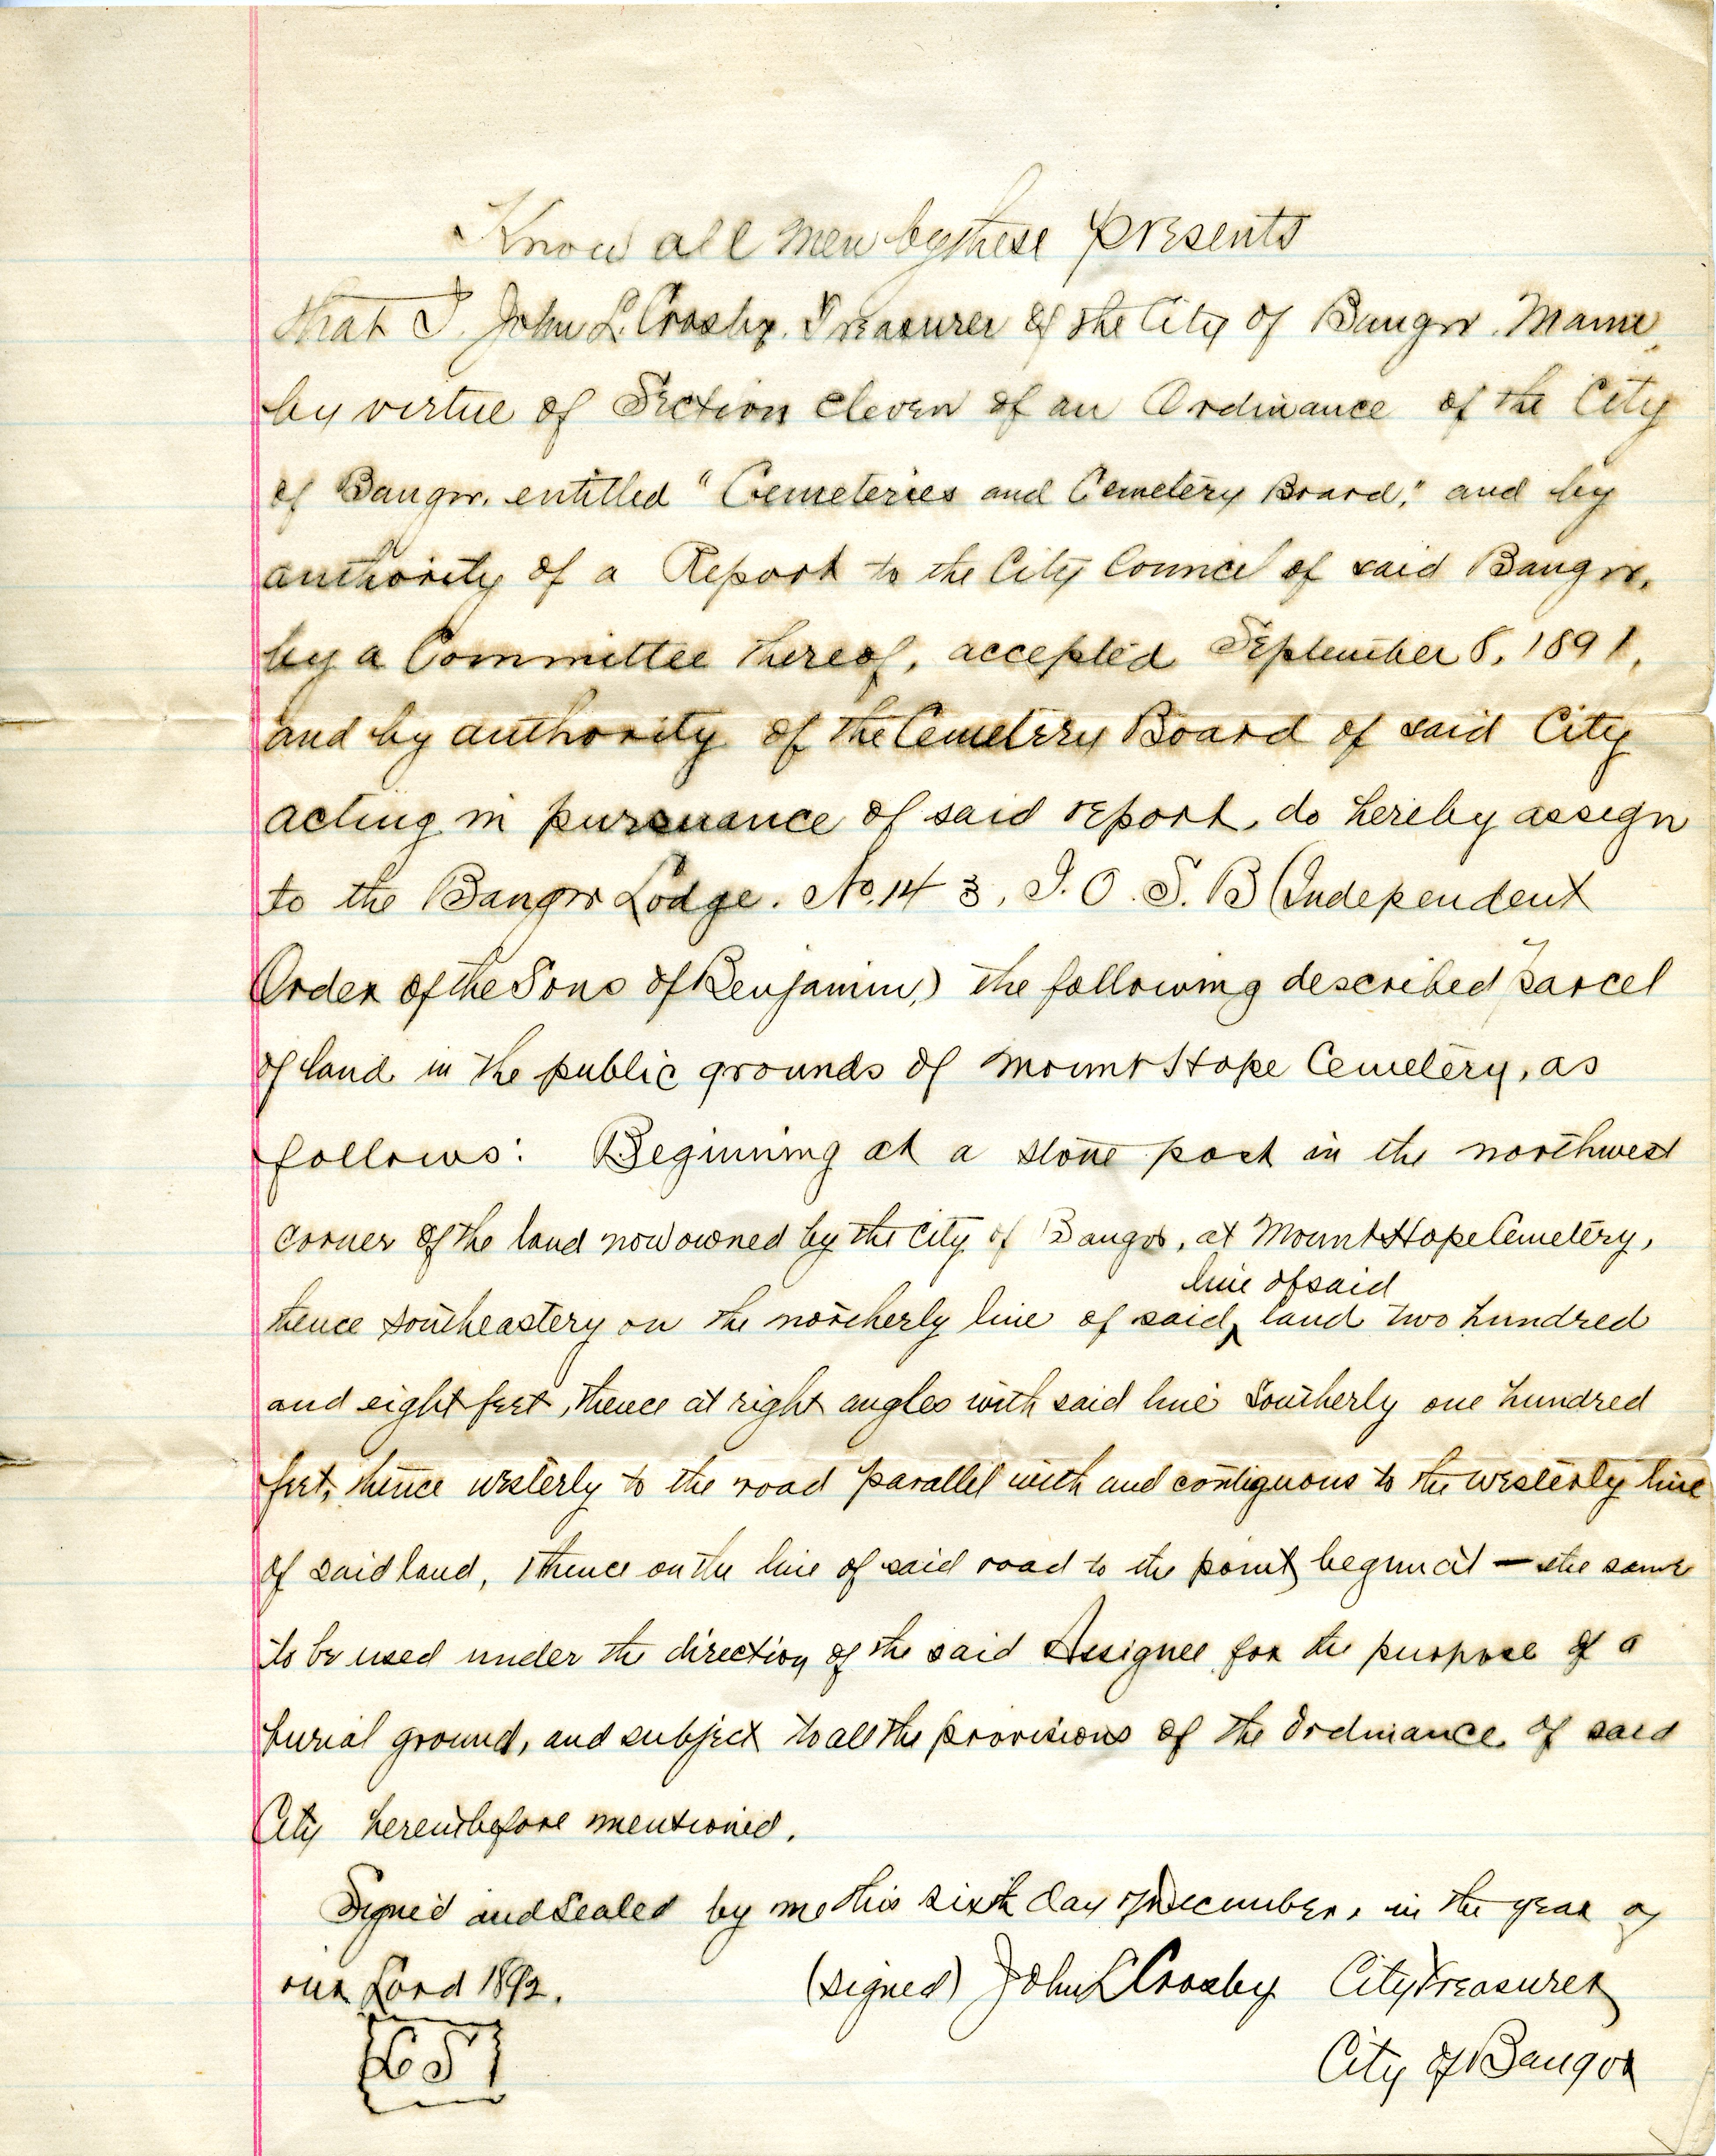 Know all men by these presents
that I, John L. Crosby, Treasurer of the City of Bangor, Maine,
by virtue of Section eleven of an Ordinance of the City
of Bangor, entitled "Cemeteries and Cemetery Board," and by
authority of a Report to the City Council of said Bangor,
by a Committee thereof, accepted September 8, 1891,
and by authority of the Cemetery Board of said City
acting in pursuance of said report, do hereby assign
to the Bangor Lodge. No. 143, I. O. S. B (Independent
Order of the Sons of Benjamin,) the following described parcel
of land in the public grounds of Mount Hope Cemetery, as
follows: Beginning at a stone post in the northwest
corner of the land now owned by the City of Bangor, at Mount Hope Cemetery,
line of said
thence southeastery on the northerly line of said land two hundred
and eight feet, thence at right angles with said line Southerly one hundred
feet, thence westerly to the road parallel with and contiguous to the westerly line
of said land, thence on the line of said road to the point begun at — the same
to be used under the direction of the said Assignee for the purpose of a
burial ground, and subject to all the provisions of the Ordinance of said
City hereinbefore mentioned.
Signed and Sealed by me this sixth day of December, in the year of
our Lord 1892. (signed) John L Crosby City Treasurer
City of Bangor